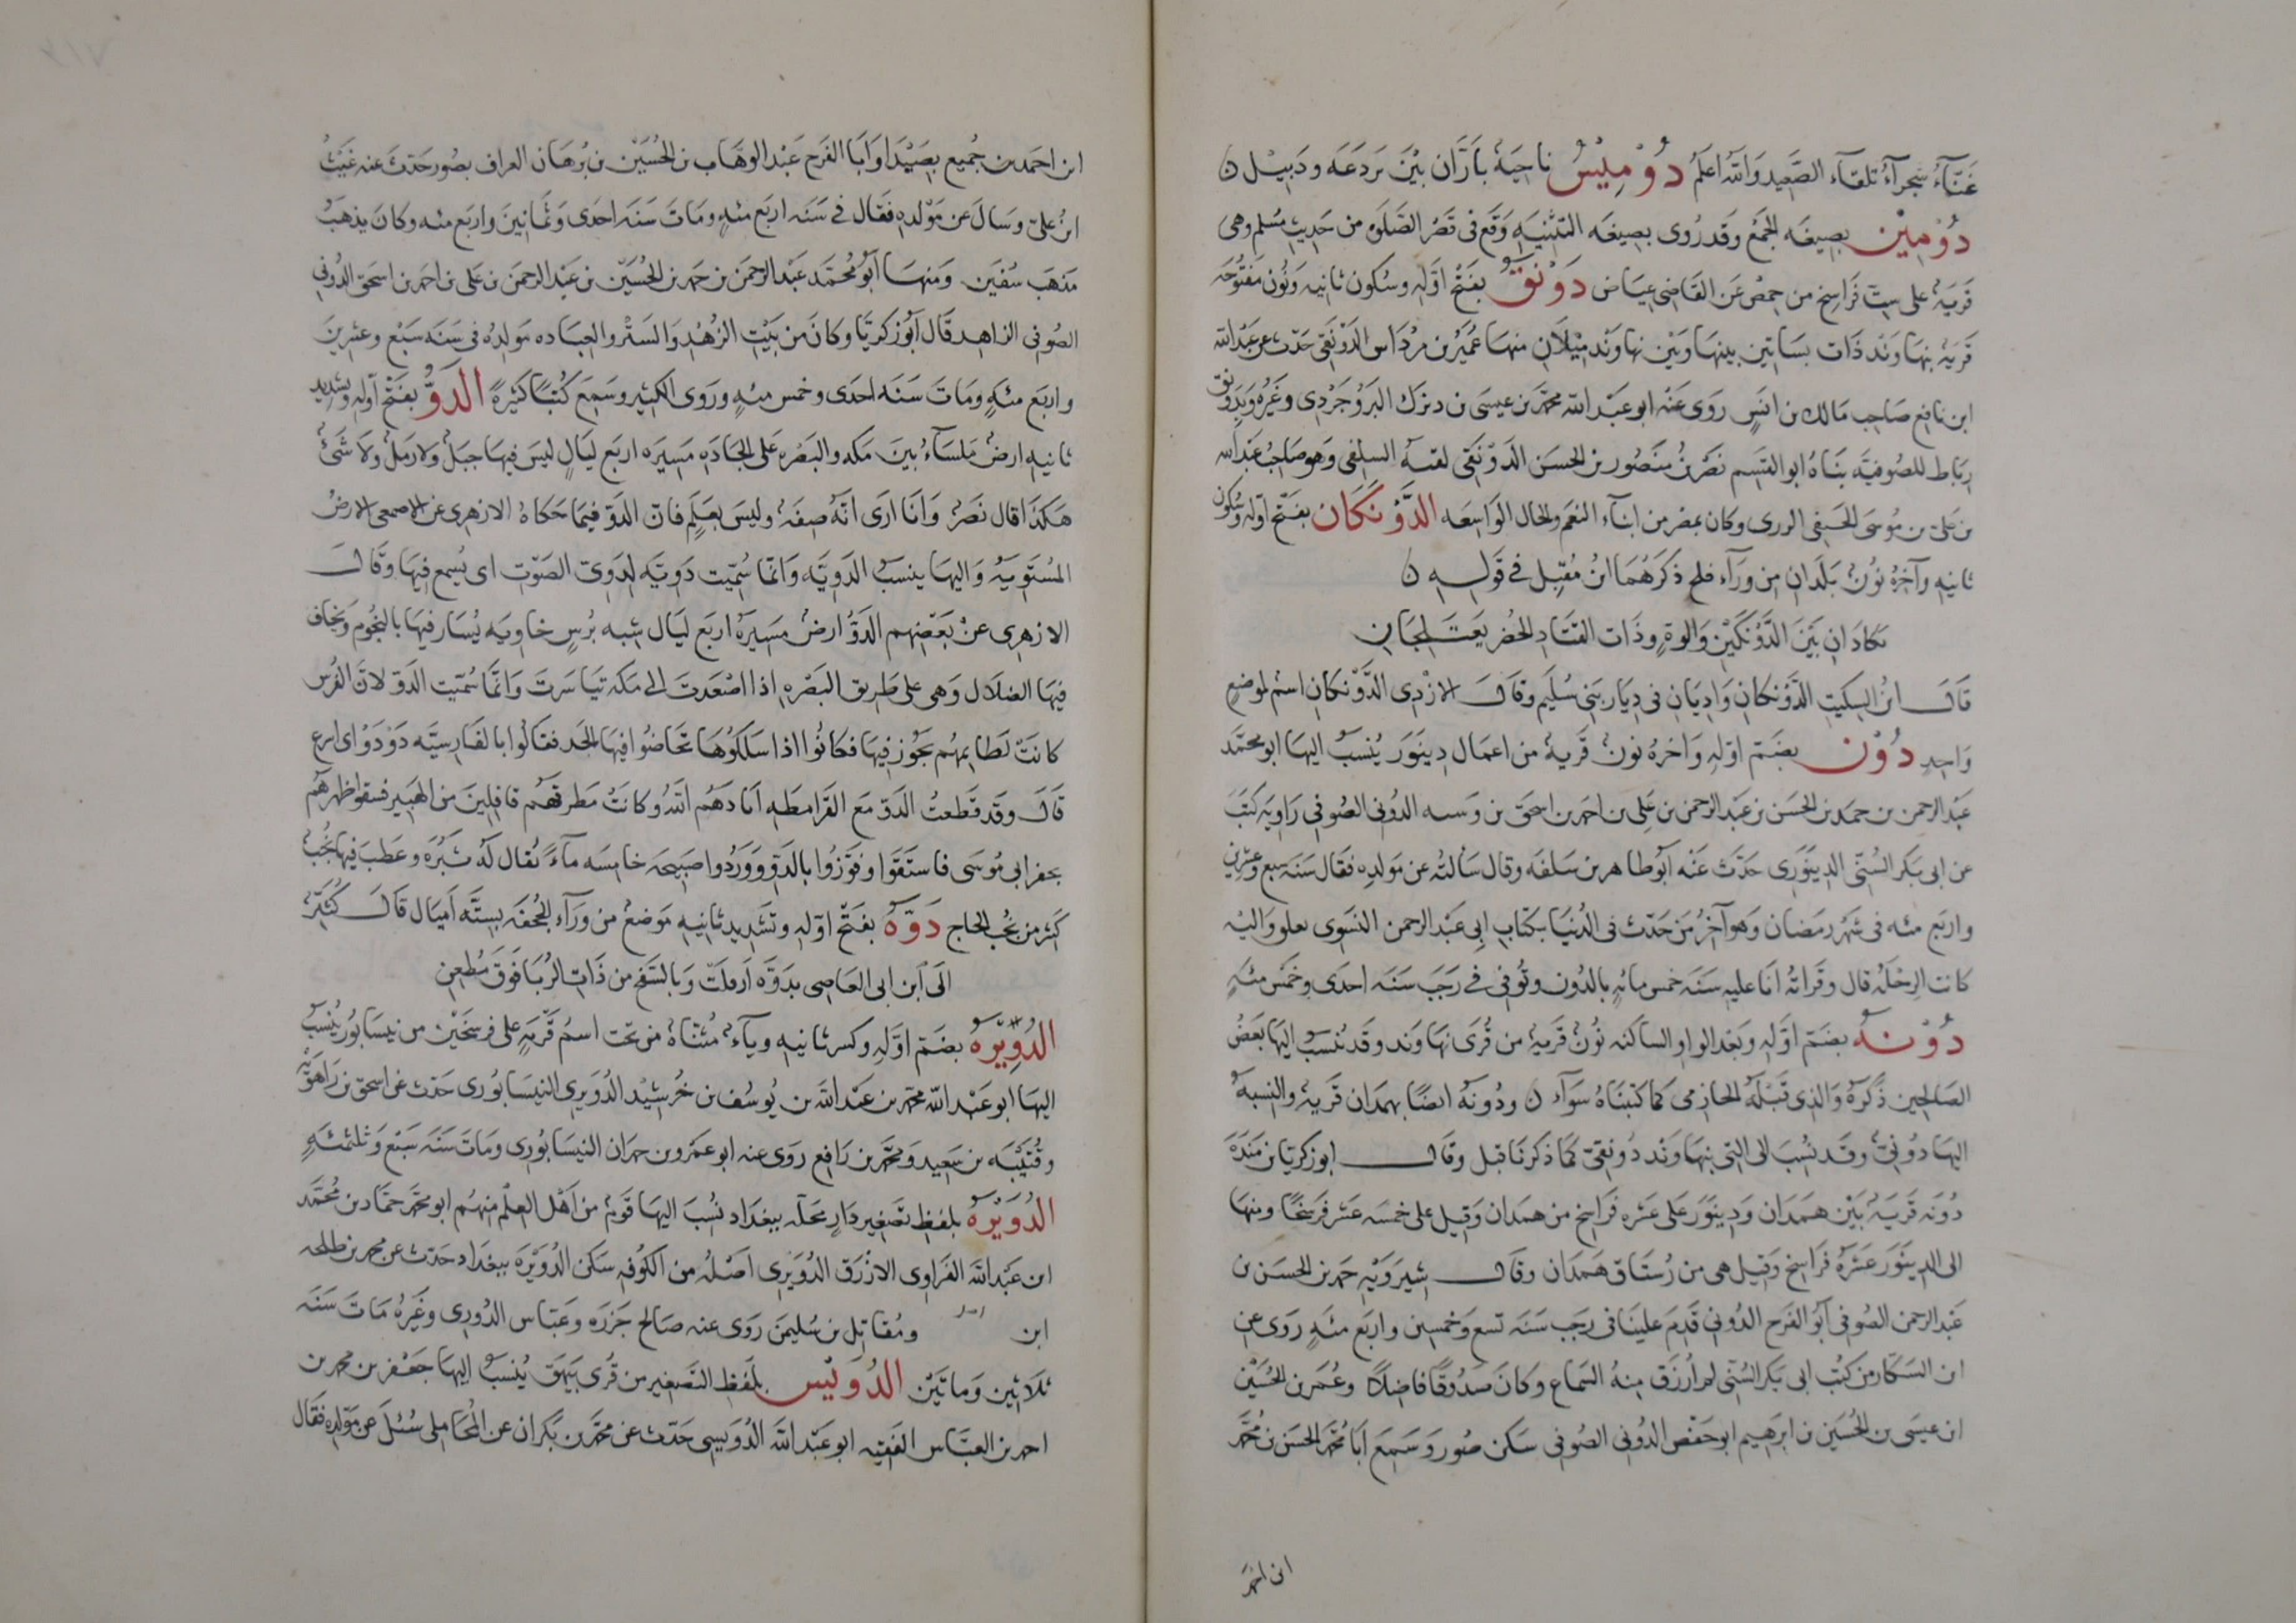 غَنَّآءُ شجرآءُ تلقآء الصَّعيد وَاللهُ اعلمُ دُوْمِيْسُ ناحِيَةٌ بأرَّان بيْنَ بَردَعَه ودَبيْل ن
دُوْمِيْن بصِيغَه الجمْع وَقد رُوى بصِيغَه التثْنيَهِ وَقَع فى قصْر الصَّلوٰه من حَديث مُسْلم وهى
قريَهٌ على ستّ فَراسِخ من حِمصْ عَن القَاضى عِيَاض دَوْنَقُ بفَتْح اوّلهِ وسُكون ثانيه وَنُون مَفتُوحَه
قريَهٌ بنهَاوَنْد ذَات بسَاتين بينهَا وَبيْن نهاونْد مِيْلاَن منهَا عُمَيْر بن مِرْدَاس الدَوْنَقى حَدّث عن عَبْد الله
ابن نافع صَاحِب مَالك بن انَسٍ رَوَى عَنْه ابو عَبْد الله محمّد بن عيسَى بن ديزك البَرُوْجَرْدى وغَيْرُه وَبدَوْنق
رباط للصُوفيَّه بَنَاهُ ابو القسِم نصْر بنُ منصُور بن الحسَن الدَوْنَقى لقيه السلفى وَهو صَاحِب عَبْد الله
بن عَلى بن مُوسَى الحنفى الزرى وكان بمصْر من ابنآء النعَم والحال الوَاسِعَه الدَّوْنَكَان بفَتْح اوّله وسُكون
ثانيه وآخرُهُ نُوْن بَلَدان من ورَآء فلج ذكرَهُمَا ابنُ مُقبِل فى قوَلِه ن
يكادَان بَيْنَ الدَّوْنَكَيْن وَالوةٍ وذَات القتَادِ الخُضْر يعَتَلجَانِ
قَالَ ابنُ السِكيت الدَّوْنَكانِ وَاديَانِ فى ديَار بَنى سُلَيم وقالَ الازْدى الدَّوْنكانِ اسْم لموْضِع
وَاحِدٍ دُوْن بضَمّ اوّلهِ وَاخرهُ نونٌ قريهٌ من اعمَال دِينَوَر يُنْسَبُ اليهَا ابو محَمَّد
عَبْد الرحمن بن حمَد بن الحسَن بن عَبد الرحمن بن عَلى بن احمد بن اسحق بن وَسه الدُونى الصُوفى رَاويَة كتب
عن ابى بَكر السُنّى الدينَوَرى حَدّث عَنْه ابُو طاهر بن سَلفَه وقال سَألتُه عن مَولدِه فقَال سَنَة سبع وعشرين
واربَع مئه فى شهْر رمَضَان وَهوَ آخرُ مَن حَدّث فى الدُنيَا بكتَابِ ابى عَبْد الرحمن النسَوى بعلو وَاليْه
كانت الرِحْلَهُ قال وقرَأتُهُ انَا عليهِ سَنَة خمس مِائهٍ بالدُون وتُوفى فى رَجَب سَنَة احدَى وخَمْس مئهٍ
دُوْنهُ بضَمّ اوّلهِ وَبَعْد الواو السَاكنه نُوْن قَريهٌ من قُرَى نهَاوَند وقد يُنسَبُ اليهَا بَعْضُ
الصَالحِين ذَكرَهُ وَالذى قَبْلَهُ الحازمى كمَا كتبنَاهُ سَوَآء ن ودُونَهُ ايضًا بهمَدان قَريهٌ والنسبَهُ
اليهَا دُوْنىّ وقد نُسِبَ الى التى بنهَاوَند دُونقى كمَا ذكرنَا قبل وقَالَ ابو زكريا بن مَنْدَه
دُونَه قَريَهٌ بَيْن هَمَدان وَدينَوَر عَلى عَشره فَرَاسِخ من همَدان وَقيل على خمسَه عَشَر فَرْسَخًا ومنهَا
الى الدينَوَر عَشَرهُ فَرَاسِخ وَقيل هى من رُسْتَاق هَمَدان وقال شيرَوَيْه حمد بن الحسَن بن
عَبْد الرحمن الصُوفى ابُو الفَرَح الدُونى قَدِمَ علينَا فى رَجَب سَنَة تسْع وَخَمْسين واربَع مئهٍ رَوَى عن
ابن السَكّار من كتُب ابى بَكر السُنّى لم أُرزَق مِنهُ السمَاع وكانَ صدُوقًا فاضِلاً وعُمَر بن الحُسَيْن
ابن عيسَى بن الحُسَين بن ابرهيم ابو حَفْص الدُونى الصُوفى سَكن صُور وَسَمِعَ ابَا محُمَّد الحسَن بن محُمَّد
ابن احمَد
ابن احمَد بن جُميع بصَيْدَا وَابَا الفَرَح عَبْد الوهَّاب بن الحُسَيْن بن بُرهَان العراف بصُور حَدّثَ عنه غَيْثُ
ابنُ علىّ وسَالَ عن مَوْلده فقَال فى سَنَه اربَع مئهٍ ومَاتَ سَنَه احدَى وَثمَانينَ واربَع مئه وكانَ يذهَبُ
مَذهَبَ سُفيَن وَمنهَا ابُو محُمَّد عَبْد الرحمَن بن حمَد بن الحُسَيّن بن عَبْد الرحمَن بن عَلى بن احمَد بن اسحَق الدُونى
الصُوفى الزاهِد قَال ابُو زكريّا وكانَ من بَيْتِ الزُهْدِ وَالستْر والعِبَاده مَولدُه فى سَنَه سَبْع وعشرينَ
واربَع مئهٍ ومَاتَ سَنَه احدَى وخمس مئهٍ ورَوَى الكثِير وسَمِعَ كُتُبًا كثيرَةً الدَوُّ بفَتْح اوّلهِ وتشديد
ثانيهِ ارضٌ مَلسَآءُ بينَ مَكه والبَصْره عَلى الجادَه مَسيَره اربَع ليَالٍ ليسَ فيهَا جبَلٌ ولا رمَلٌ ولا شَىءٌ
هَكذَا قال نَصْرُ وَانَا ارَى انَّهُ صِفَهٌ وليسَ بعَلَمٍ فان الدَوّ فيمَا حَكاهُ الازهرى عن الاصمعى الارضُ
المُسْتَويَهُ وَاليهَا ينسَبُ الدَويَّه وَانمَّا سُمّيَت دَويَّه لدَوىّ الصَوْت اى يُسمعُ فيهَا وَقَالَ
الازهرى عنْ بَعْضِهم الدَوُّ ارضٌ مسَيرَهُ اربَع ليَال شبه تُرسٍ خاويَه يُسَار فيهَا بالنجُوم وَيخاف
فيهَا الضلال وَهى على طَريق البَصْره اذا اصْعَدتَ الى مَكه تيَاسَرتَ وَانمَّا سُمّيَت الدَوّ لانَ الفُرس
كانَتْ لطَايمهُم تجُوز فيهَا فكانُوا اذا سَلكوُهَا تحَاضُوا فيهَا بالجد فقَالوُا بالفَارسيَّه دَوْ دَوْ اى اسرع
قَالَ وقد قطَعتُ الدَوّ مَع القَرامطَه ابَادَهُم اللهُ وكانَتْ مَطرقَهُم قافلينَ من الهبَير فسقوا ظهرهُم
بحفر ابى مُوسَى فاستَقَوا وفوّزوُا بالدَوّ وَوَرَدُوا صَبيحه خامسَه مآءً يُقال لهُ ثَبْرَه وعَطبَ فيهَا نُجُبٌ
كثير من نُجُب الحاج دَوَّهُ بفَتْح اوّله وتشَديد ثانيه مَوضعٌ من ورَآء الجُحفَه بستَّه اميَال قَالَ كُثَيّر
الَى ابن ابى العَاصِى بدَوَّه ارقلتْ وَبالسَفح من ذَات الرُبَا فوَقَ مُظعِن
الدُوِيْرَهُ بضَمّ اوّلهِ وكسر ثانيهِ ويآءٌ مُثنّاهٌ من تحت اسْمُ قَريَهٍ على فرسَخَيْن من نيسَابُور يُنْسَبُ
اليهَا ابو عَبْد الله محمّد بن عَبْد الله بن يُوسُف بن خُرشيْد الدُوِيرى النيسَابُورى حَدّث عن اسحق بن رَاهَوَيْه
وقُتَيْبَه بن سَعيد ومحَمَّد بن رَافع رَوَى عنه ابو عَمْرو بن حمدان النيسَابُورى ومَاتَ سَنَه سَبْع وَثلثمئهٍ
الدُوَيْرَهُ بلفظ تصَغير دَارٍ محَلّه ببغدَاد نُسِبَ اليهَا قَومٌ من اهْل العِلْم منهُم ابو محمّد حمَّاد بن محُمَّد
ابن عَبْد الله الفَزاوى الازْرَق الدُوَيْرى اصْلُه من الكُوفه سَكنَ الدُوَيْرَه ببغدَاد حَدّث عن محمد بن طلحه
ابن ومُقاتِل بن سُليمن رَوَى عنه صَالح جَزرَه وعَبّاس الدُورى وغَيرُه مَاتَ سَنَه
ثلاثين وَمائتَيْن الدُوَيْسُ بلفَظ التصغير من قُرى بَيْهَق يُنْسَبُ اليهَا جَعفر بن محمد بن
احمد بن العبَّاس الفقيه ابو عَبْد الله الدُوَيسى حَدّث عن محمّد بن بَكران عن المحَاملى سُئلَ عن مَولِده فقَال